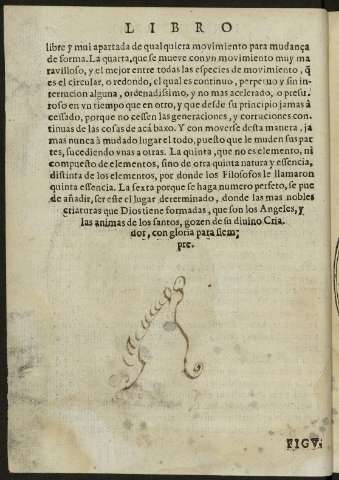 LIBRO
libre y mui apartada de qualquiera movimiento para mudança
de forma. La quarta, que se mueve con vn movimiento muy ma
ravilloso, y el mejor entre todas las especies de movimiento, q̃
es el circular, o redondo, el qual es continuo, perpetuo y sin in-
termcion alguna, ordenadissimo, y no mas acelerado, o presu.
roso en vn tiempo que en otro, y que desde su principio jamas à
cessado, porque no cessen las generaciones, y corruciones con-
tinuas de las cosas de acá baxo. Y con moverse desta manera, ja
mas nunca à mudado lugar el todo, puesto que le muden sus par
tes, sucediendo vnas a otras. La quinta, que no es elemento, ni
compuesto de elementos, sino de otra quinta natura y essencia,
distinta de los elementos, por donde los Filosofos le llamaron
quinta essencia. La sexta porque se haga numero perfeto, se pue
de añadir, ser este el lugar determinado, donde las mas nobles
criaturas que Dios tiene formadas, que son los Angeles, y
las animas de los santos, gozen de su diuino Cria
dor, con gloria para siem-
pre.
FIGV.